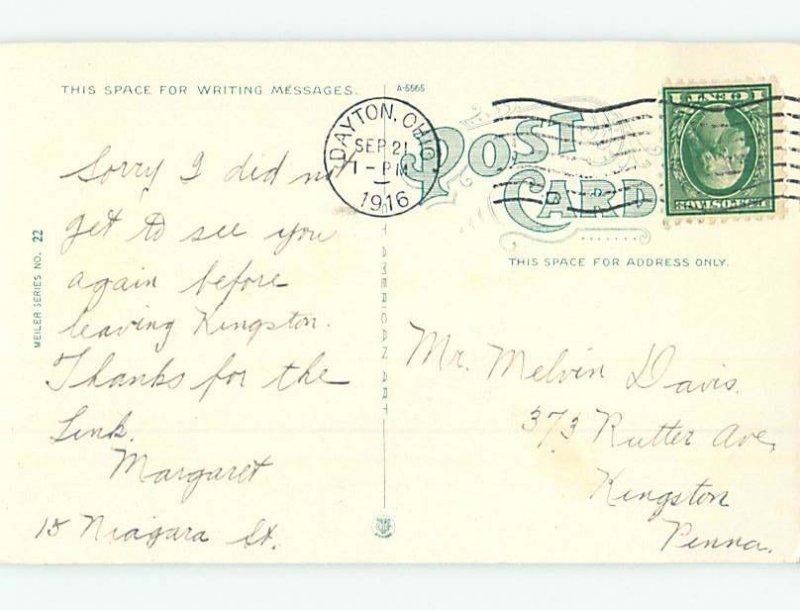 THIS SPACE FOR WRITING MESSAGES.
A-5565
POST CARD
DAYTON, OHIO
SEP 21
1-PM
1916
THIS SPACE FOR ADDRESS ONLY.
MEILER SERIES NO. 22
AMERICAN ART
Sorry I did not
get to see you
again before
leaving Kingston.
Thanks for the
Link.
Margaret
15 Niagara St.
Mr. Melvin Davis.
373 Rutter Ave,
Kingston
Penna.